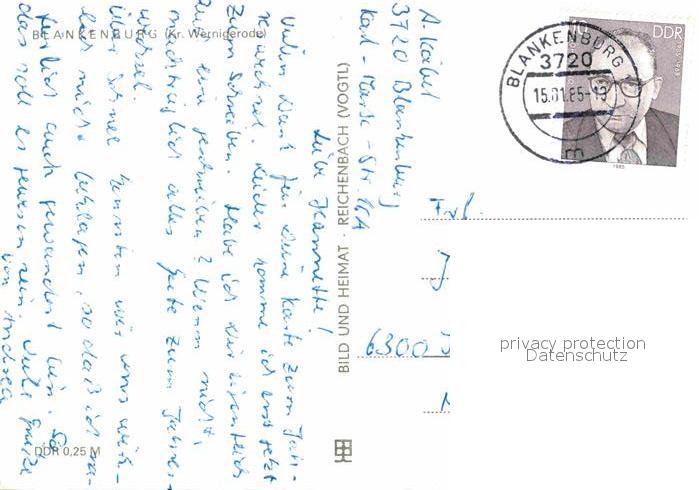 BLANKENBURG (Kr. Wernigerode)
A. Käbel
3720 Blankenburg
Karl-Marx-Str. 16A
Liebe Jeannette!
Vielen Dank für Deine Karte zum Jah-
reswechsel. Leider komme ich erst jetzt
zum Schreiben. Habe ich Dir eigentlich
zu geschrieben? Wenn nicht,
nachträglich alles Gute zum Jahres-
wechsel.
Über Schnee konnten wir uns wirk-
lich nicht beklagen, so daß ich na-
türlich auch gewandert bin. So
das soll es gewesen sein. Viele Grüße
von Andrea
BILD UND HEIMAT · REICHENBACH (VOGTL)
DDR 0,25 M
BLANKENBURG 1
3720
15.01.85-13
m
10
DDR
1985
Frl.
J
6300 J
privacy protection
Datenschutz